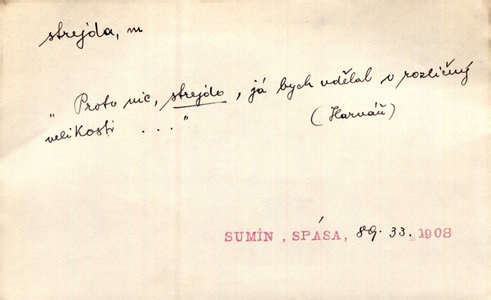 strejda, m
„Proto nic, strejdo, já bych udělal v rozličný
velikosti ..."
(Harváň)
SUMÍN, SPÁSA, 89. 33. 1908